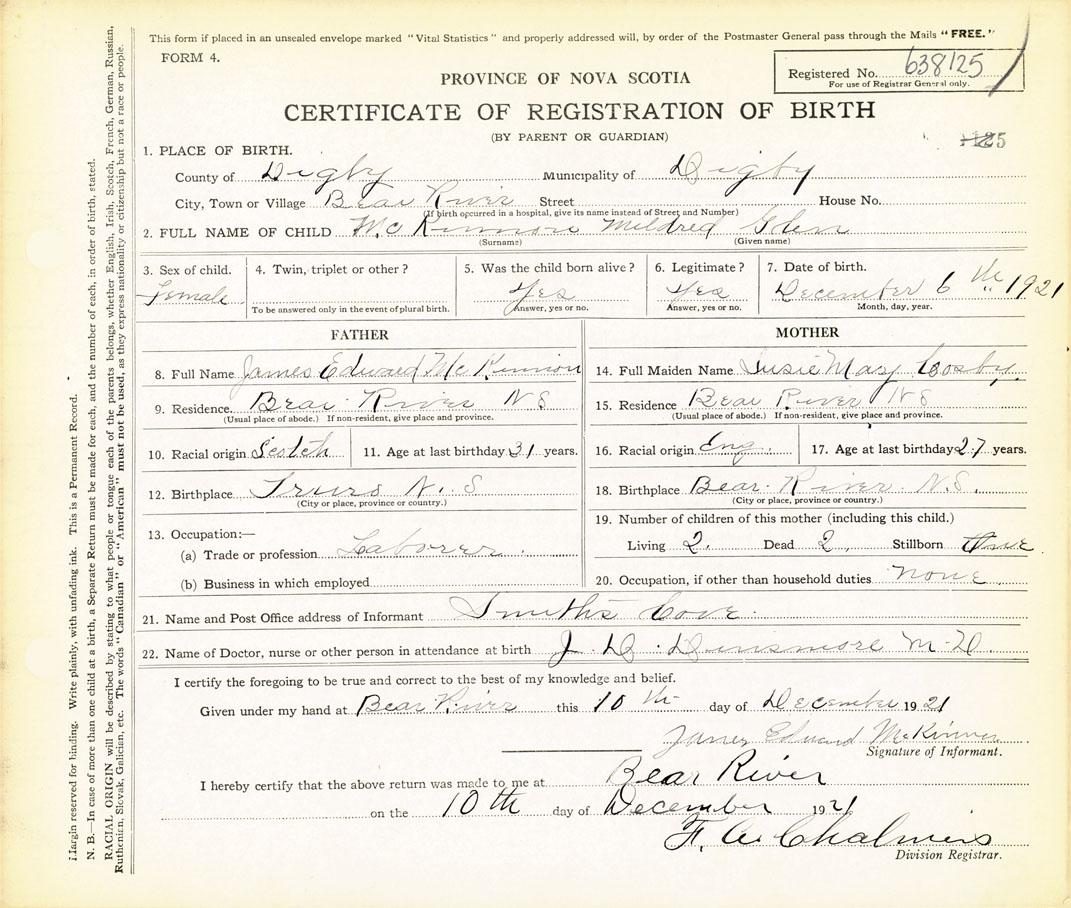 This form if placed in an unsealed envelope marked "Vital Statistics" and properly addressed will, by order of the Postmaster General pass through the Mails "FREE."
FORM 4.
Registered No. 638125
For use of Registrar General only.
PROVINCE OF NOVA SCOTIA
CERTIFICATE OF REGISTRATION OF BIRTH
(BY PARENT OR GUARDIAN)
1. PLACE OF BIRTH.
County of Digby Municipality of Digby
City, Town or Village Bear River Street House No.
(If birth occurred in a hospital, give its name instead of Street and Number)
2. FULL NAME OF CHILD McKinnon Mildred Glen
(Surname) (Given name)
3. Sex of child. 4. Twin, triplet or other? 5. Was the child born alive? 6. Legitimate? 7. Date of birth.
Female Yes Yes December 6th 1921
To be answered only in the event of plural birth. Answer, yes or no. Answer, yes or no. Month, day, year.
FATHER
8. Full Name James Edward McKinnon
9. Residence. Bear River N S
(Usual place of abode.) If non-resident, give place and province.
10. Racial origin Scotch 11. Age at last birthday 31 years.
12. Birthplace Truro N. S
(City or place, province or country.)
13. Occupation:—
(a) Trade or profession Laborer
(b) Business in which employed
MOTHER
14. Full Maiden Name Susie May Cosby
15. Residence Bear River N S
(Usual place of abode.) If non-resident, give place and province.
16. Racial origin Eng. 17. Age at last birthday 27 years.
18. Birthplace Bear River N.S.
(City or place, province or country.)
19. Number of children of this mother (including this child.)
Living 2. Dead 2. Stillborn
20. Occupation, if other than household duties none
21. Name and Post Office address of Informant Smith's Cove
22. Name of Doctor, nurse or other person in attendance at birth J. D. Dinsmore M-D.
I certify the foregoing to be true and correct to the best of my knowledge and belief.
Given under my hand at Bear River this 10th day of December 1921
James Edward McKinnon
Signature of Informant.
I hereby certify that the above return was made to me at Bear River
on the 10th day of December 1921
F. W. Chalmers
Division Registrar.
Margin reserved for binding. Write plainly, with unfading ink. This is a Permanent Record.
N. B.—In case of more than one child at a birth, a Separate Return must be made for each, and the number of each, in order of birth, stated.
RACIAL ORIGIN will be described by stating to what people or tongue each of the parents belongs, whether English, Irish, Scotch, French, German, Russian,
Ruthenian, Slovak, Galician, etc. The words "Canadian" or "American" must not be used, as they express nationality or citizenship but not a race or people.